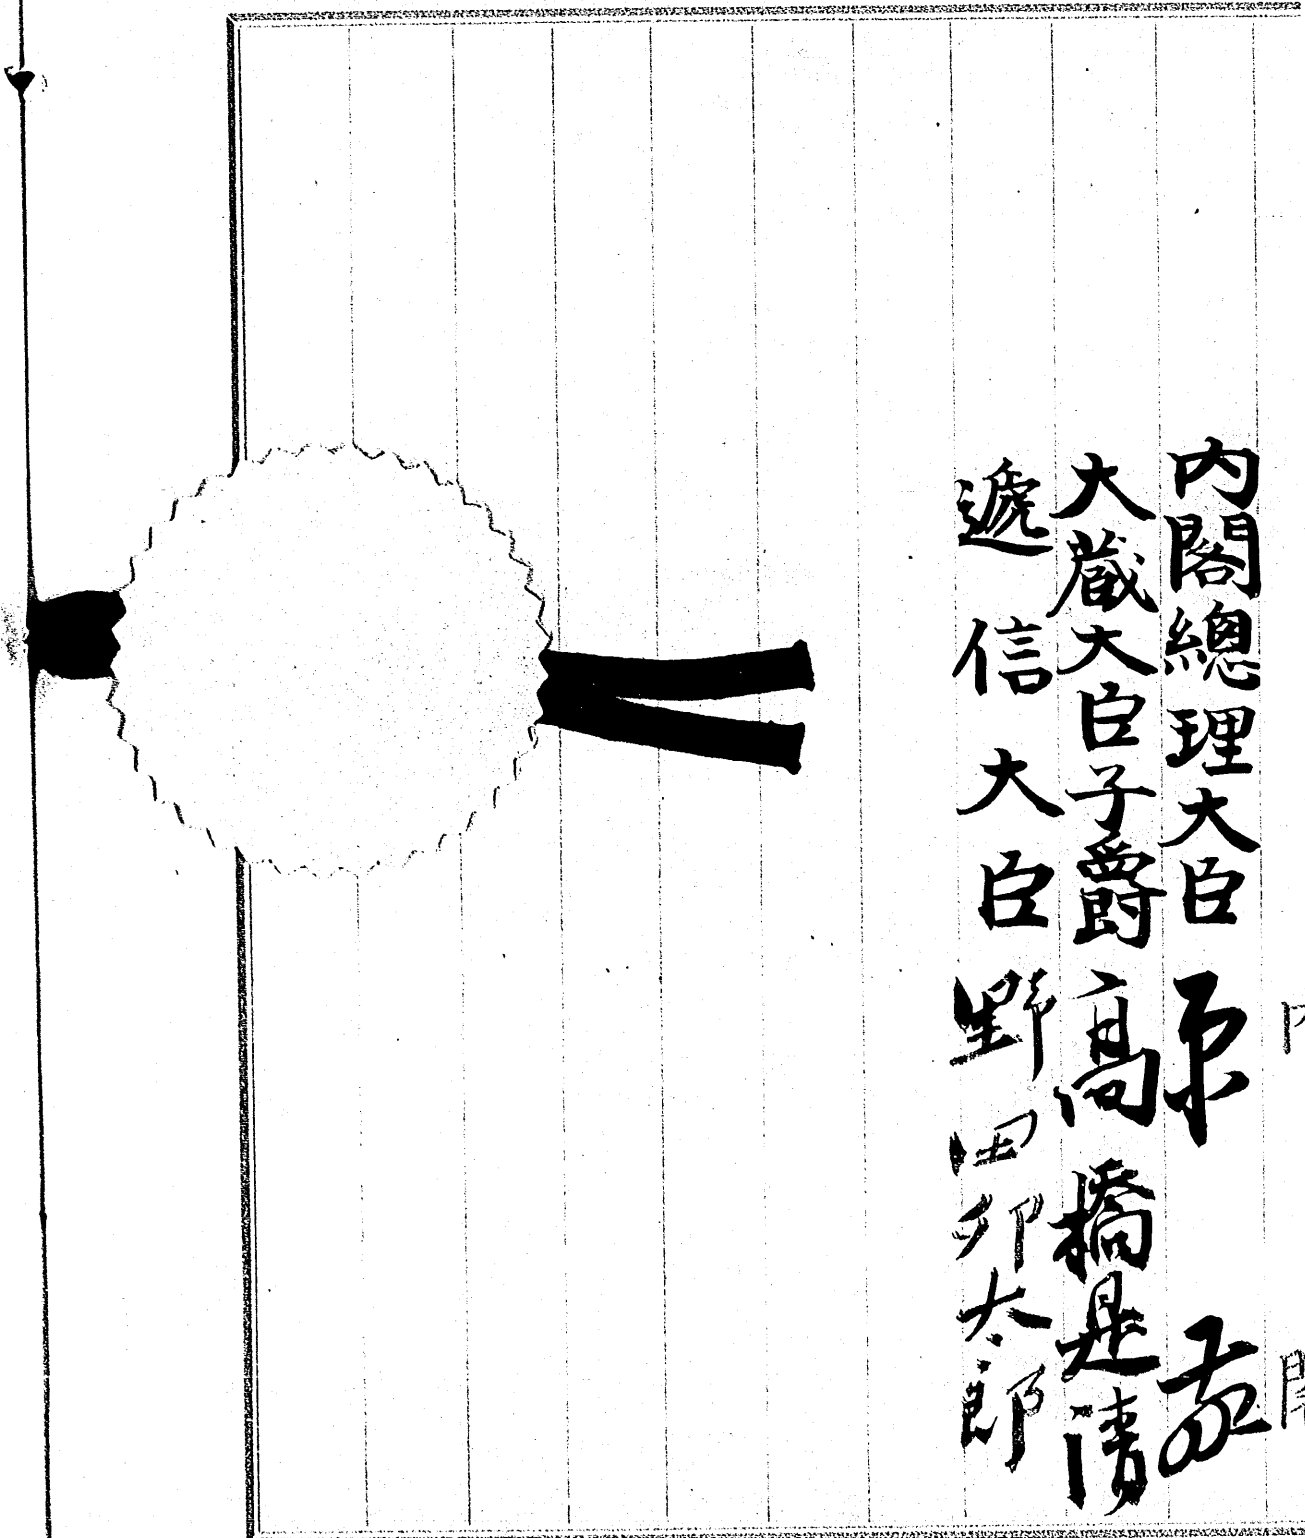 內閣總理大臣 原 敬
大藏大臣子爵 高橋是清
遞信大臣 野田卯太郎